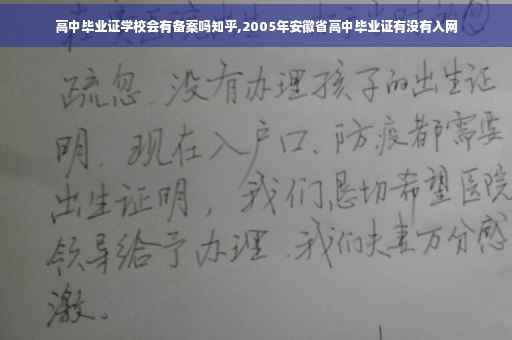 高中毕业证学校会有备案吗知乎,2005年安徽省高中毕业证有没有入网
疏忽、没有办理孩子的出生证
明、现在入户口、防疫都需要
出生证明，我们恳切希望医院
领导给予办理、我们夫妻万分感
激。